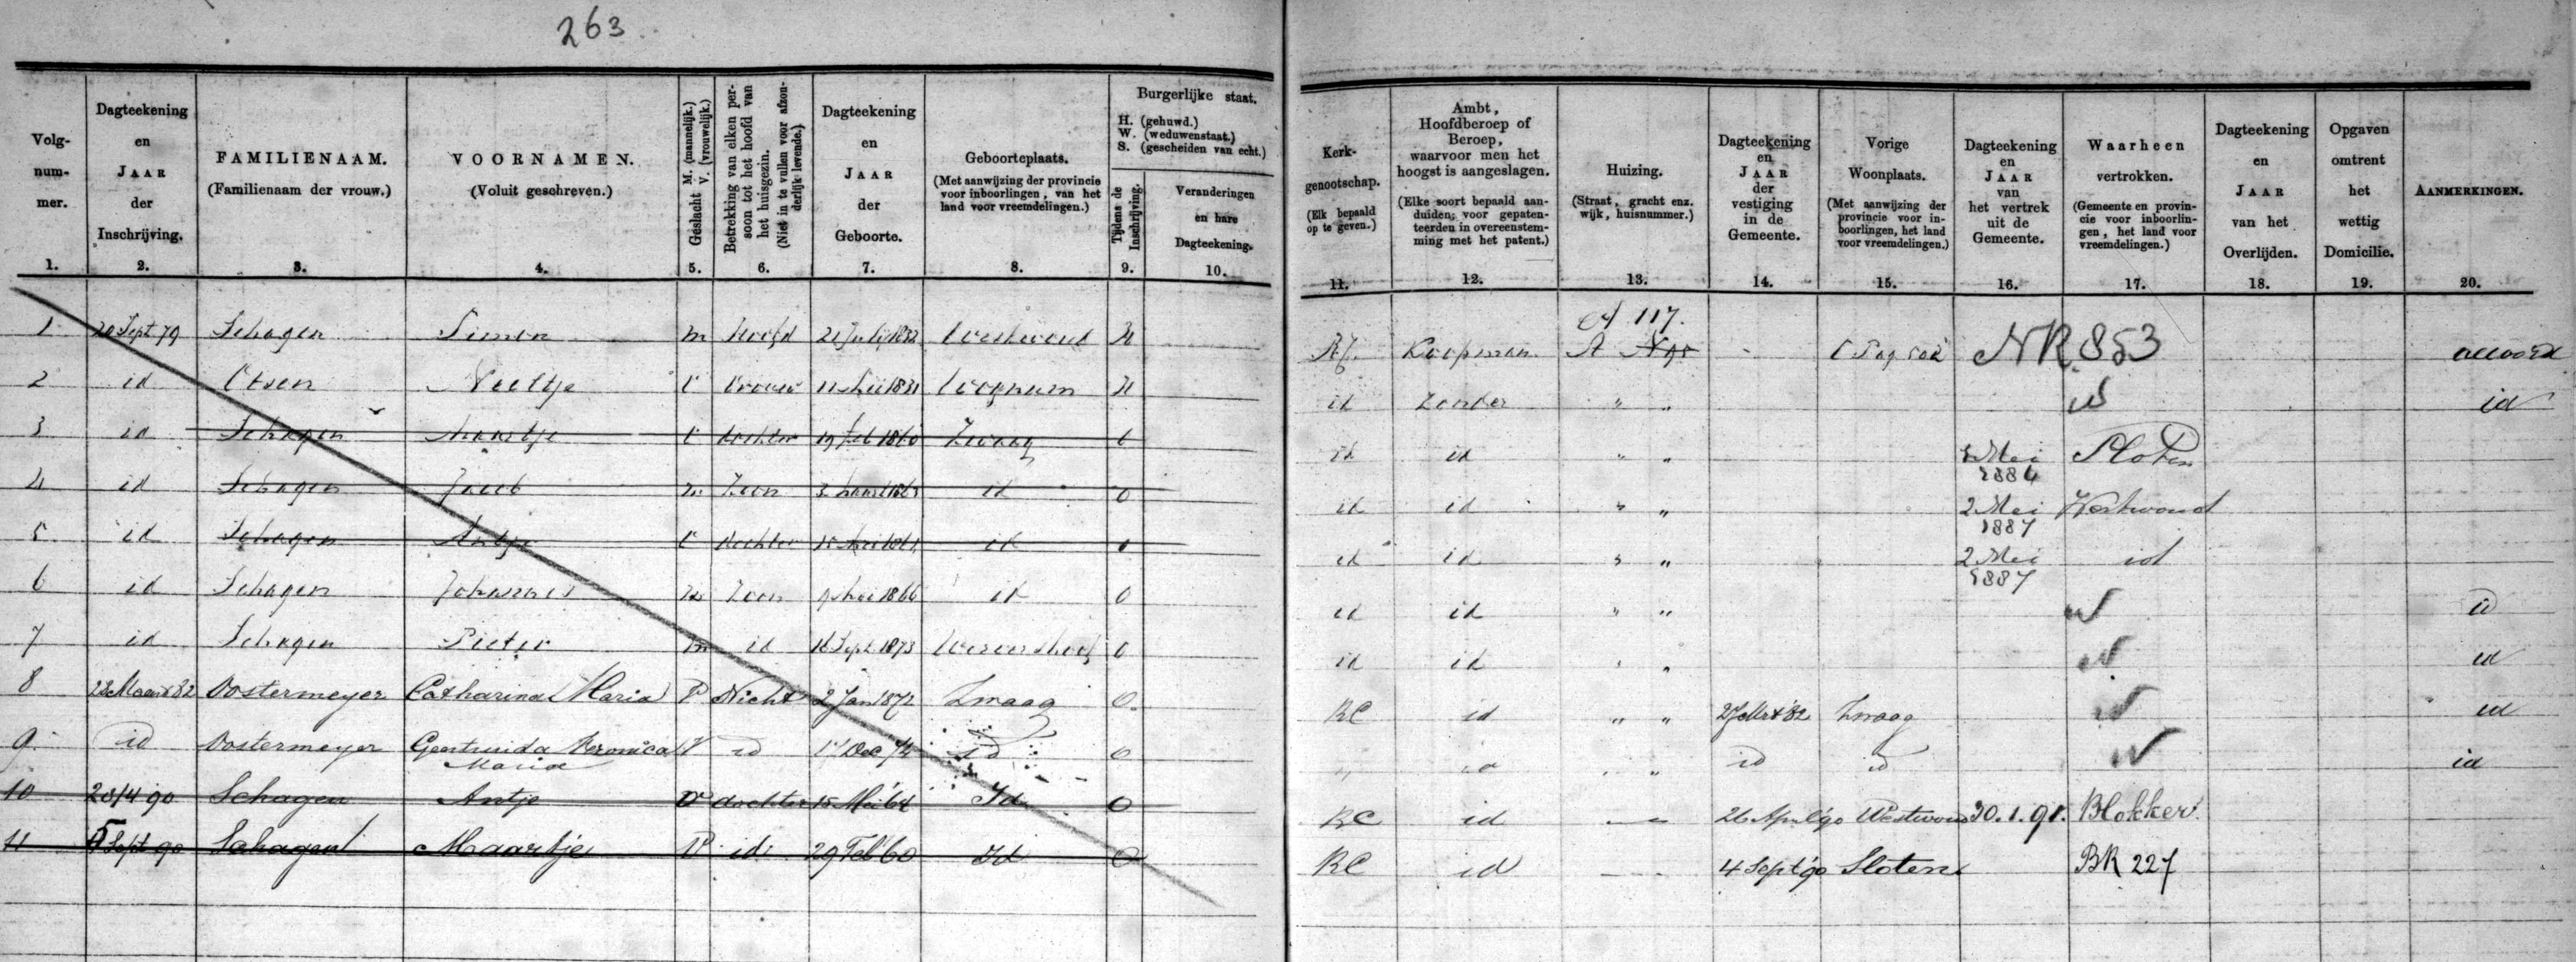 263
Volg-nummer.
1.
Dagteekening en JAAR der Inschrijving.
2.
FAMILIENAAM.
(Familienaam der vrouw.)
3.
VOORNAMEN.
(Voluit geschreven.)
4.
Geslacht M. (mannelijk.) V. (vrouwelijk.)
5.
Betrekking van elken persoon tot het hoofd van het huisgezin. (Niet in te vullen voor afzonderlijk levende.)
6.
Dagteekening en JAAR der Geboorte.
7.
Geboorteplaats.
(Met aanwijzing der provincie voor inboorlingen, van het land voor vreemdelingen.)
8.
Burgerlijke staat.
H. (gehuwd.)
W. (weduwenstaat.)
S. (gescheiden van echt.)
Tijdens de Inschrijving.
9.
Veranderingen en hare Dagteekening.
10.
Kerk-genootschap.
(Elk bepaald op te geven.)
11.
Ambt, Hoofdberoep of Beroep, waarvoor men het hoogst is aangeslagen.
(Elke soort bepaald aanduiden; voor gepatenteerden in overeenstemming met het patent.)
12.
Huizing.
(Straat, gracht enz. wijk, huisnummer.)
13.
Dagteekening en JAAR der vestiging in de Gemeente.
14.
Vorige Woonplaats.
(Met aanwijzing der provincie voor inboorlingen, het land voor vreemdelingen.)
15.
Dagteekening en JAAR van het vertrek uit de Gemeente.
16.
Waarheen vertrokken.
(Gemeente en provincie voor inboorlingen, het land voor vreemdelingen.)
17.
Dagteekening en JAAR van het Overlijden.
18.
Opgaven omtrent het wettig Domicilie.
19.
AANMERKINGEN.
20.
A 117.
1 20 Sept 79 Schagen Simon m hoofd 21 Julij 1832 Westwoud H RC. Koopman A NR 853 accoord
2 id Otsen Neeltje V vrouw 1831 Wognum H id Zonder " " id id
3 id Schagen Maartje V dochter 19 Feb 1860 Zwaag O id id " " 1 Mei 1884 Sloten
4 id Schagen Jacob m Zoon id O id id " " 2 Mei 1887 Westwoud
5 id Schagen Antje V dochter id O id id " " 2 Mei 1887 id
6 id Schagen Johannes m Zoon 9 Mei 1866 id O id id " " id id
7 id Schagen Pieter m id 16 Sept 1873 Wervershoof O id id " " id id
8 28 Maart 82 Oostermeyer Catharina Maria V Nicht 2 Jan 1872 Zwaag O. RC id " " 27 Mrt '82 Zwaag id id
9. id Oostermeyer Geertruida Veronica Maria V id 1 Dec 74 id O " id " " id id id id
10 28/4 90 Schagen Antje V dochter 15 Mei 64 Id O RC id — 26 April '90 Westwoud 30.1.91. Blokker
11 5 Sept 90 Schagen Maartje V id 29 Feb 60 Id O RC id — 4 Sept '90 Sloten BR 227